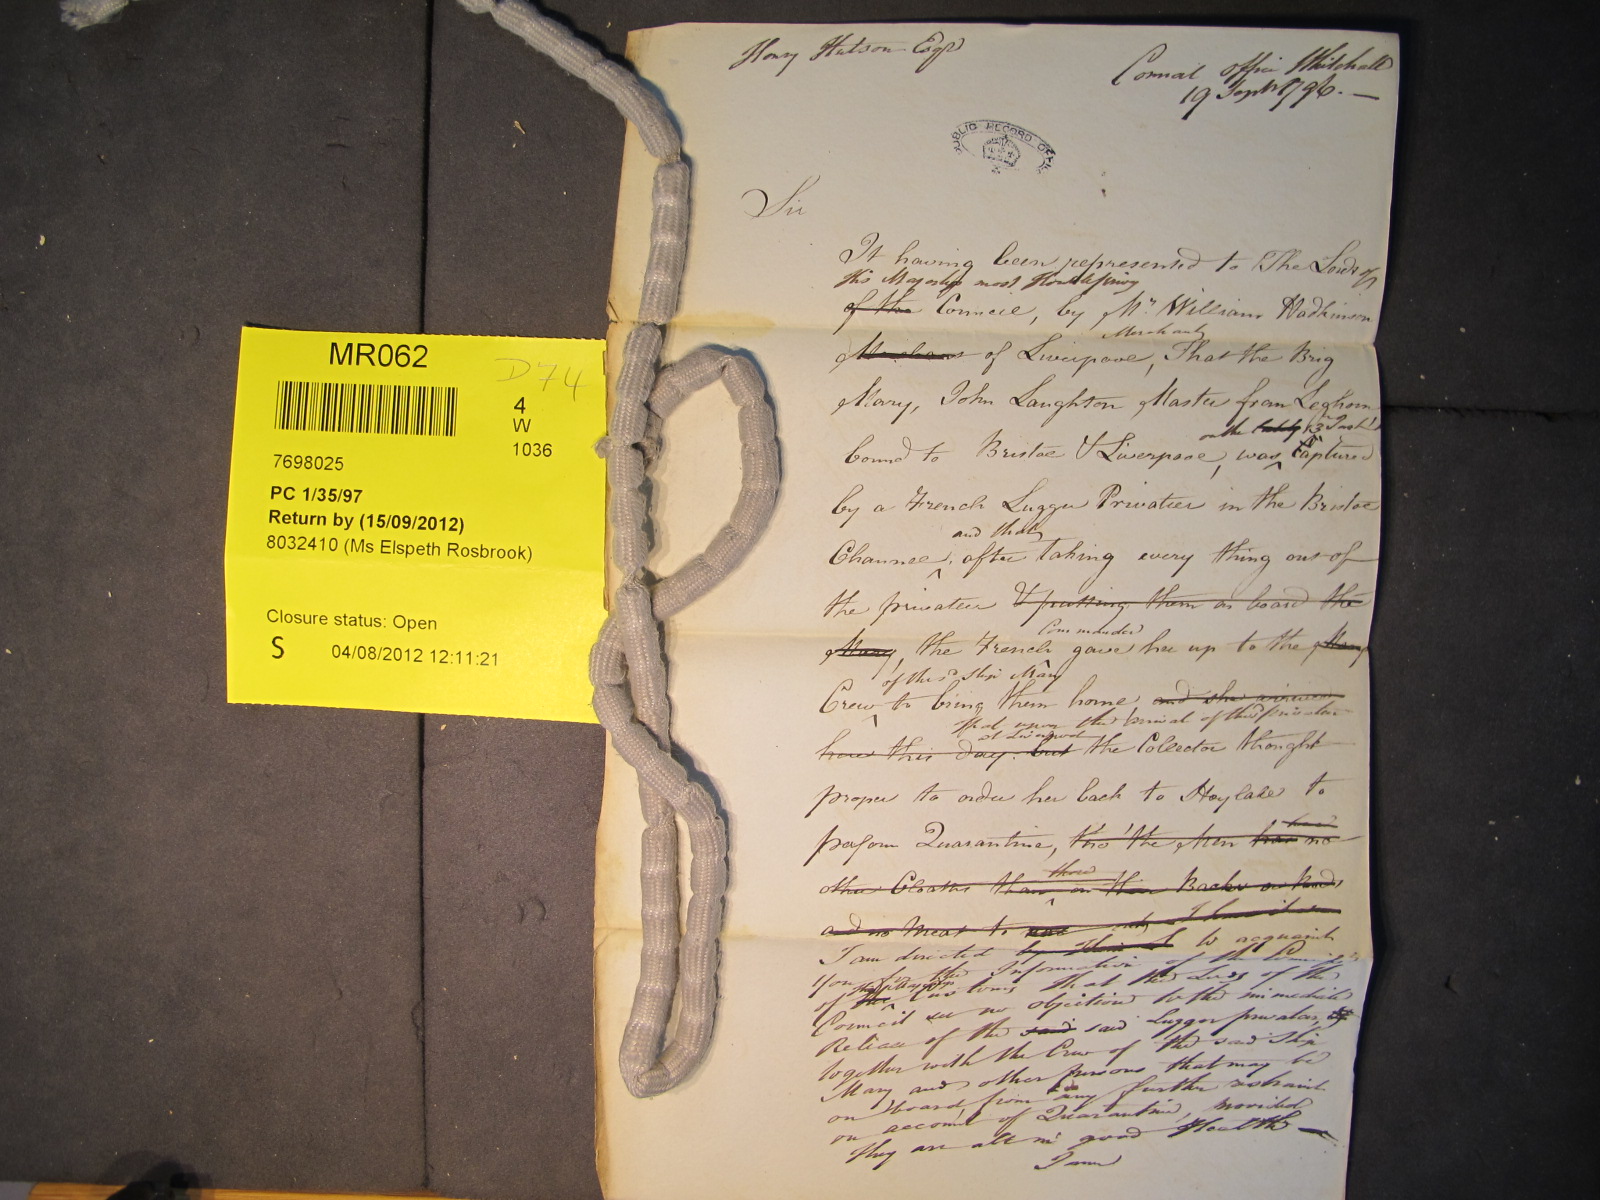 MR062
D74
4
W
1036
7698025
PC 1/35/97
Return by (15/09/2012)
8032410 (Ms Elspeth Rosbrook)
Closure status: Open
S
04/08/2012 12:11:21
Henry Hutson Esqr
Council office Whitehall
19 Septr 1796. —
PUBLIC RECORD OFFICE
Sir
It having been represented to The Lords of
His Majestys most Honble privy
of the Council, by Mr. William Hadkinson
Merchant
of Liverpool, That the Brig
Mary, John Laughton Master from Leghorn
on the 13 Inst
bound to Bristol & Liverpool, was Captured
by a French Lugger Privateer in the Bristol
and that
Channel, after taking every thing out of
the privateer & putting them on board the
Commander
Mary, the French gave her up to the Mary
of the sd Ship Mary
Crew to bring them home, and she arrived
That upon the arrival of the privateer
at Liverpool
here this day. but the Collector thought
proper to order her back to Hoylake to
perform Quarantine, tho' the Men had no
those
other Cloaths than on their Backs or Beds
and no Meat to
I am directed by to acquaint
You for the Information of the
of the Customs that the Lords of the
Council see no objection to the immediate
Release of the said said Lugger privateer,
together with the Crew of the said Ship
Mary and other persons that may be
on board from any further restraint
on account of Quarantine, provided
they are all in good Health —
I am